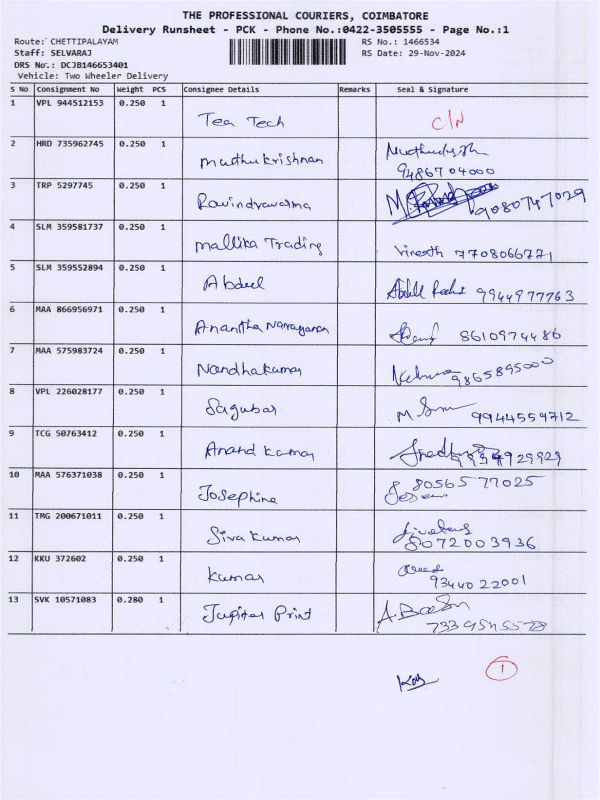 THE PROFESSIONAL COURIERS, COIMBATORE
Delivery Runsheet - PCK - Phone No.:0422-3505555 - Page No.:1
Route: CHETTIPALAYAM RS No.: 1466534
Staff: SELVARAJ RS Date: 29-Nov-2024
DRS No.: DCJB146653401
Vehicle: Two Wheeler Delivery
S No Consignment No Weight PCS Consignee Details Remarks Seal & Signature
1 VPL 944512153 0.250 1 Tea Tech C/N
2 HRD 735962745 0.250 1 Muthukrishnan 9486704000
3 TRP 5297745 0.250 1 Ravindravarma 9080747029
4 SLM 359581737 0.250 1 Mallika Trading Vineeth 7708066771
5 SLM 359552894 0.250 1 Abdul 9944977763
6 MAA 866956971 0.250 1 Anantha Narayanan 8610974486
7 MAA 575983724 0.250 1 Nandhakumar 9865895000
8 VPL 226028177 0.250 1 Sagubar 9944559712
9 TCG 50763412 0.250 1 Anand kumar
10 MAA 576371038 0.250 1 Josephine 8056577025
11 TMG 200671011 0.250 1 Siva kumar 8072003936
12 KKU 372602 0.250 1 Kumar 9344022001
13 SVK 10571083 0.280 1 Jupiter Print
1